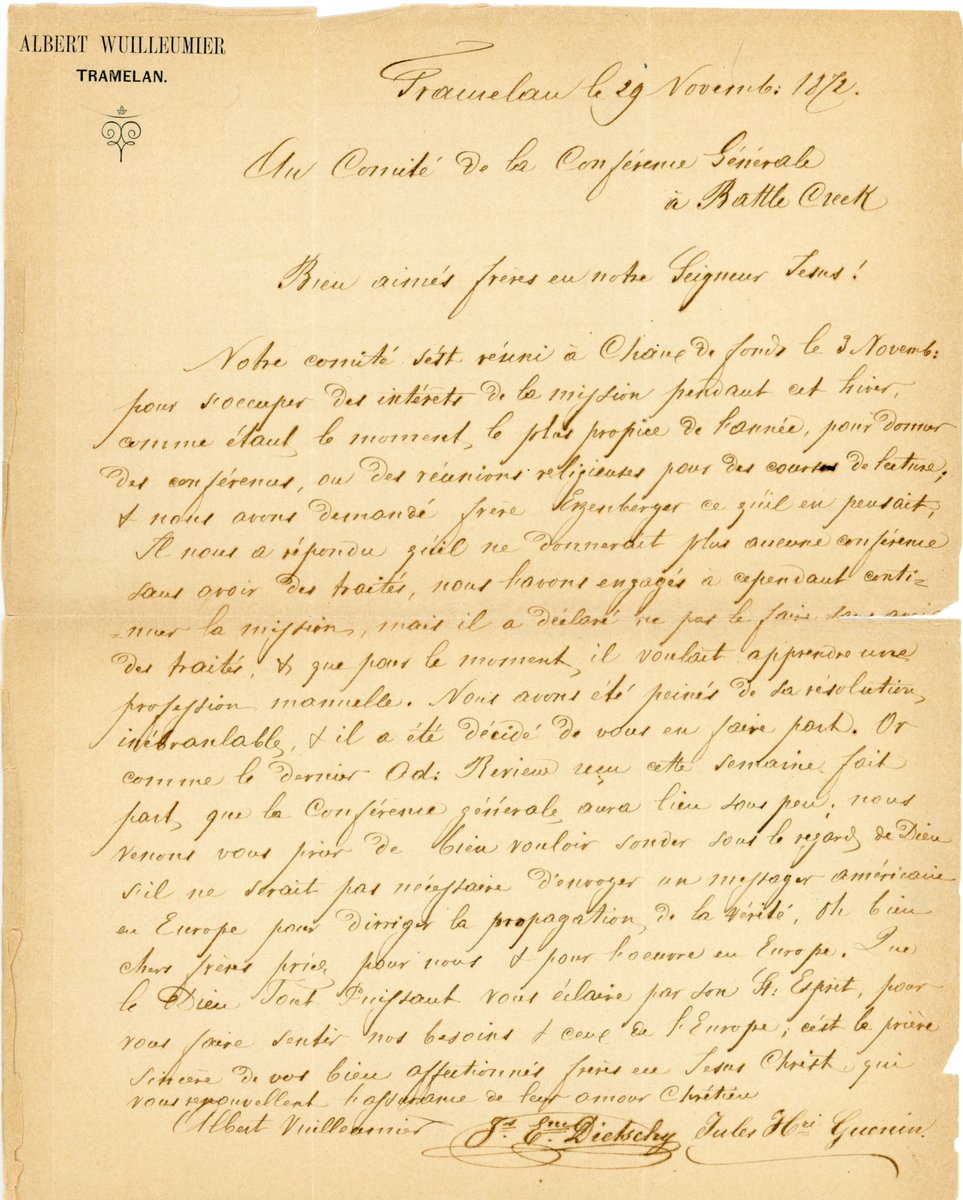 ALBERT WUILLEUMIER
TRAMELAN.
Tramelan le 29 Novemb: 1872.
Au Comité de la Conférence Générale
à Battle Creek
Bien aimés frères en notre Seigneur Jesus!
Notre comité s'est réuni à Chaux de fonds le 3 Novemb:
pour s'occuper des intérêts de la mission pendant cet hiver,
comme étant le moment le plus propice de l'année, pour donner
des conférences, ou des réunions religieuses pour des cours de lecture;
& nous avons demandé frère Erzenberger ce qu'il en pensait,
Il nous a répondu qu'il ne donnerait plus aucune conférence
sans avoir des traités, nous l'avons engagés à cependant conti-
-nuer la mission, mais il a déclaré ne pas le faire sans avoir
des traités, & que pour le moment il voulait apprendre une
profession manuelle. Nous avons été peinés de sa résolution
inébranlable, & il a été décidé de vous en faire part. Or
comme le dernier Ad: Review reçu cette semaine fait
part, que la Conférence générale aura lieu sous peu; nous
venons vous prier de bien vouloir sonder sous le regard de Dieu
s'il ne serait pas nécessaire d'envoyer un messager américain
en Europe pour dirriger la propagation de la vérité, Oh bien
chers frères priez pour nous & pour l'oeuvre en Europe. Que
le Dieu Tout Puissant vous éclaire par son St: Esprit, pour
vous faire sentir nos besoins & ceux de l'Europe; c'est la prière
sincère de vos bien affectionnés frères en Jesus Christ, qui
vous renouvellent l'assurance de leur amour Chrétien
Albert Vuilleumier Js. Ene. Dietschy Jules Hri Guenin.